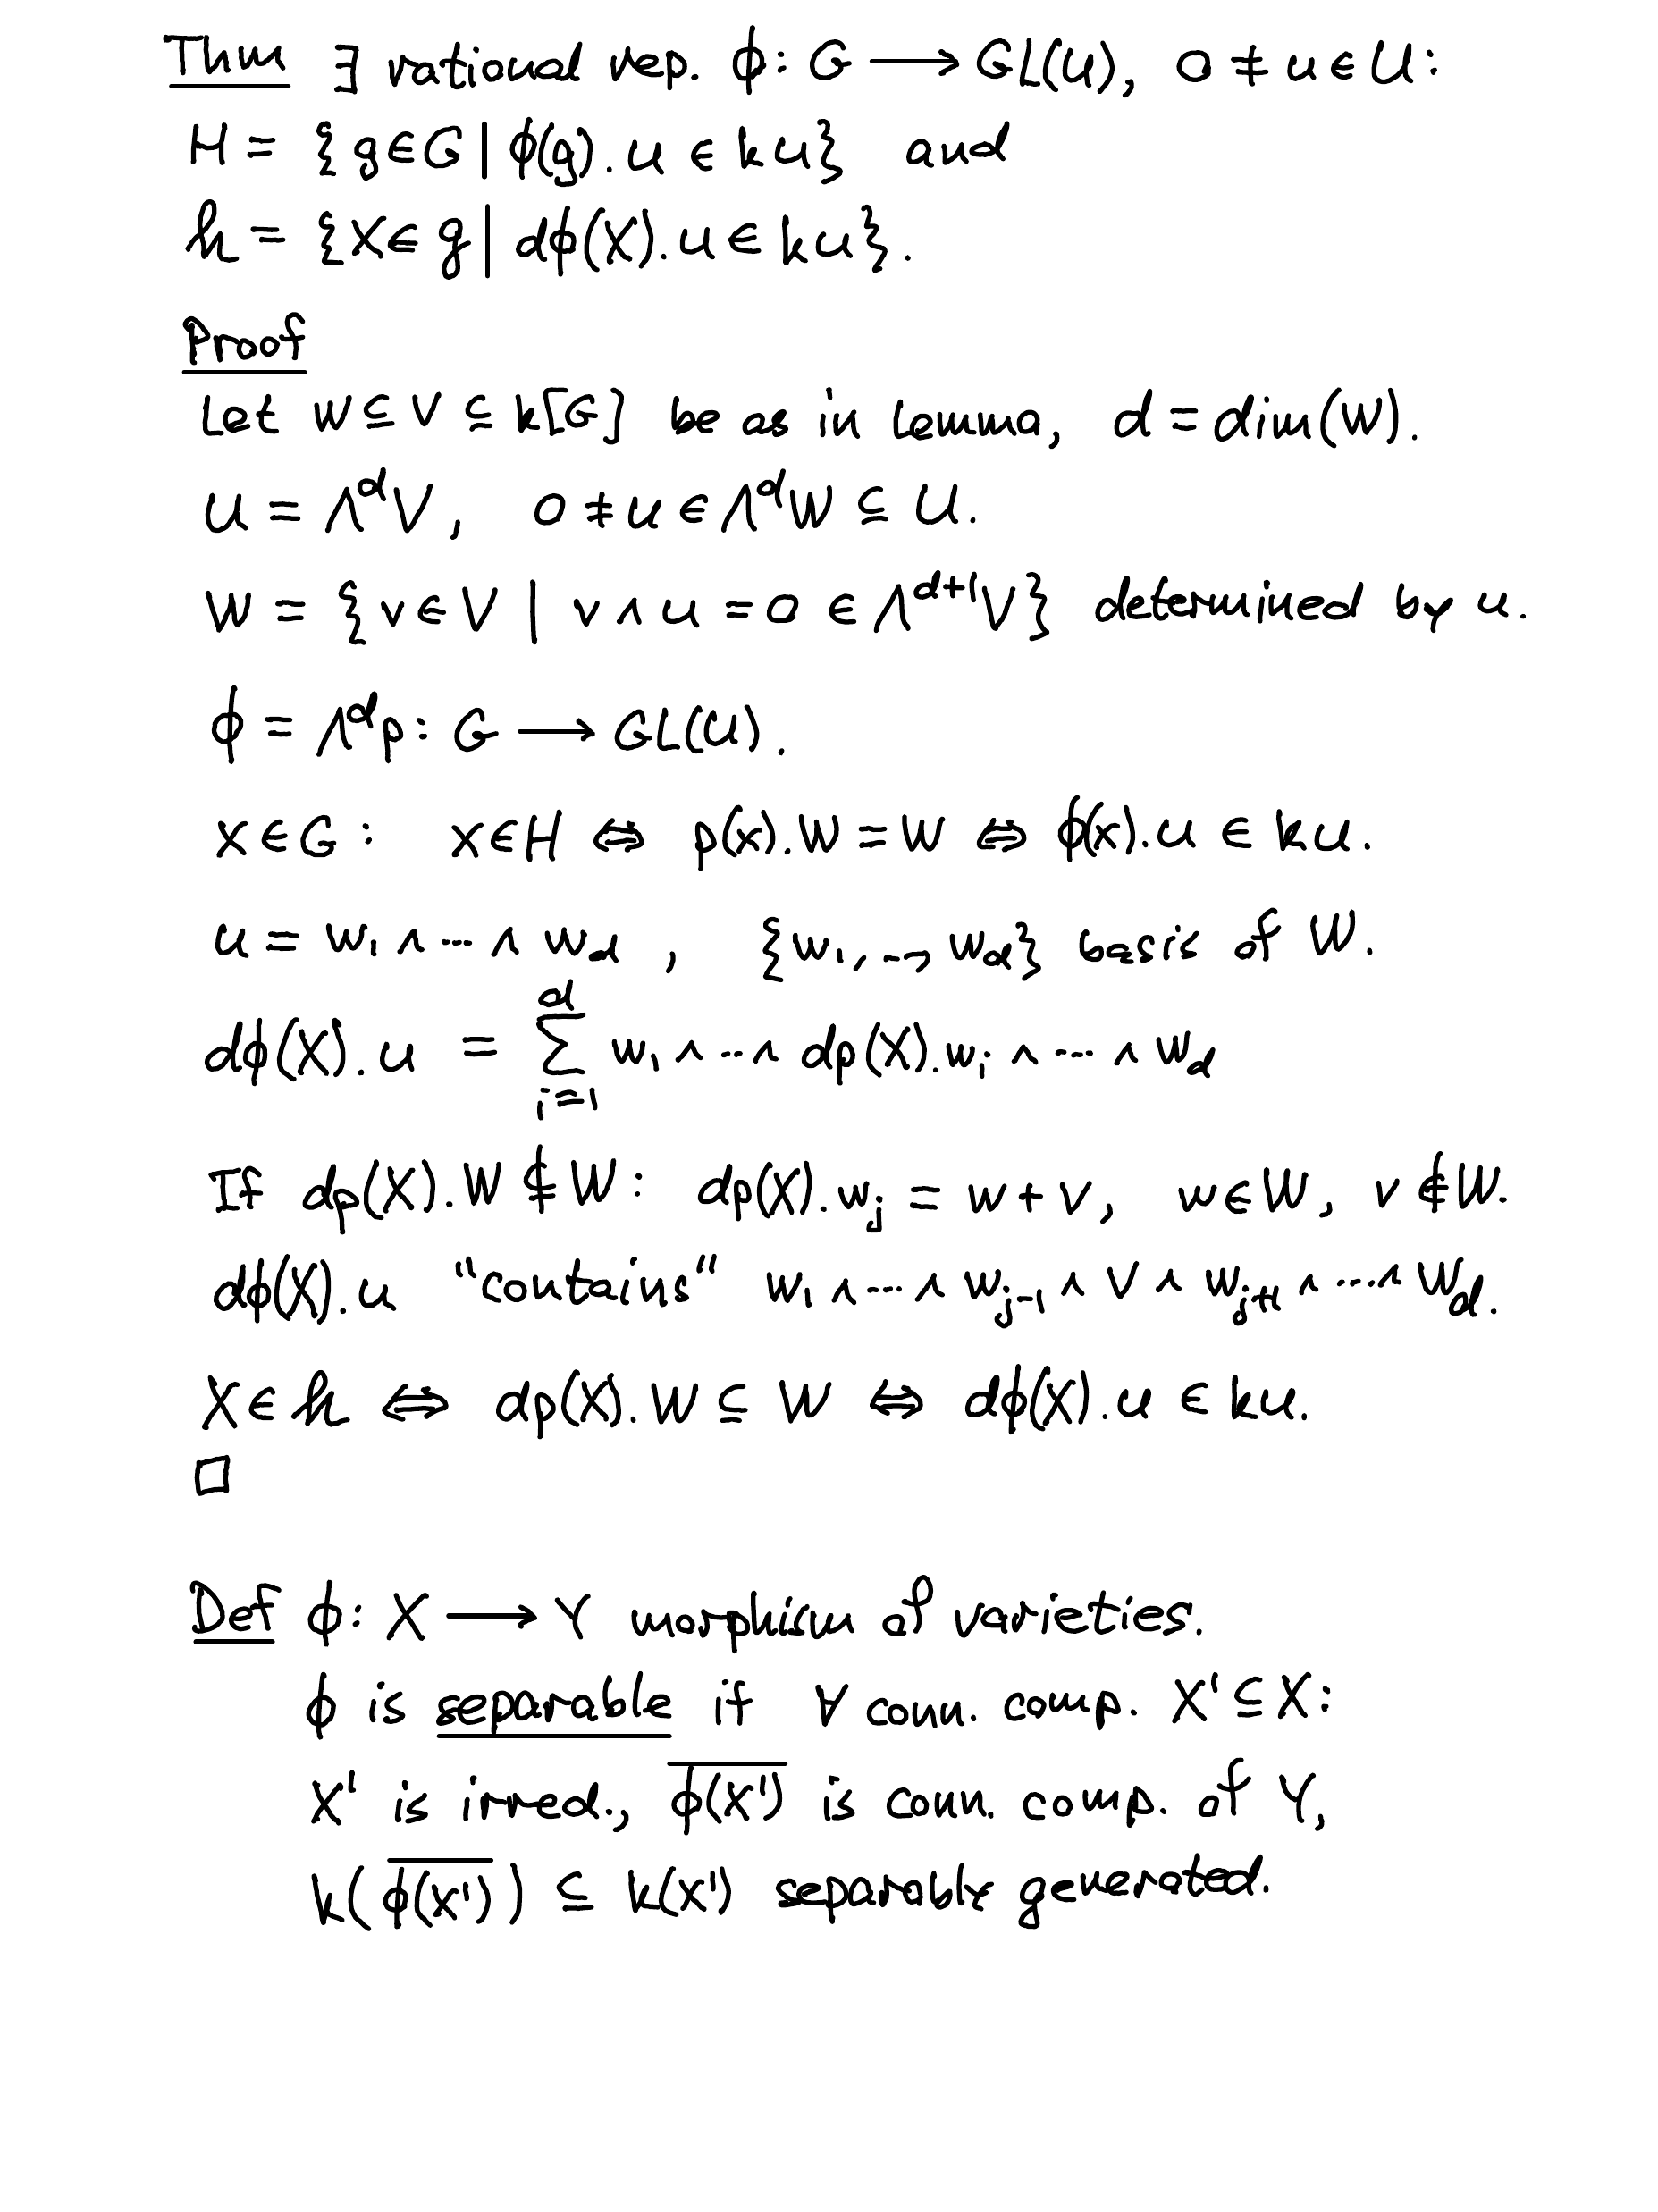 Thm ∃ rational rep. ϕ: G ⟶ GL(U), 0 ≠ u ∈ U:
H = {g ∈ G | ϕ(g).u ∈ ku} and
𝔥 = {X ∈ 𝔤 | dϕ(X).u ∈ ku}.
Proof
Let W ⊆ V ⊆ k[G] be as in Lemma, d = dim(W).
U = Λ^d V, 0 ≠ u ∈ Λ^d W ⊆ U.
W = {v ∈ V | v ∧ u = 0 ∈ Λ^{d+1} V} determined by u.
ϕ = Λ^d ρ: G ⟶ GL(U).
x ∈ G: x ∈ H ⇔ ρ(x).W = W ⇔ ϕ(x).u ∈ ku.
u = w_1 ∧ ... ∧ w_d , {w_1, ..., w_d} basis of W.
dϕ(X).u = ∑_{i=1}^{d} w_1 ∧ ... ∧ dρ(X).w_i ∧ ... ∧ w_d
If dρ(X).W ⊄ W: dρ(X).w_j = w + v, w ∈ W, v ∉ W.
dϕ(X).u "contains" w_1 ∧ ... ∧ w_{j-1} ∧ v ∧ w_{j+1} ∧ ... ∧ w_d.
X ∈ 𝔥 ⇔ dρ(X).W ⊆ W ⇔ dϕ(X).u ∈ ku.
□
Def ϕ: X ⟶ Y morphism of varieties.
ϕ is separable if ∀ conn. comp. X' ⊆ X:
X' is irred., \overline{ϕ(X')} is conn. comp. of Y,
k(\overline{ϕ(X')}) ⊆ k(X') separably generated.